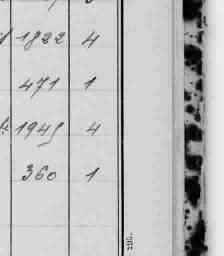 1822 4
471 1
1945 4
360 1